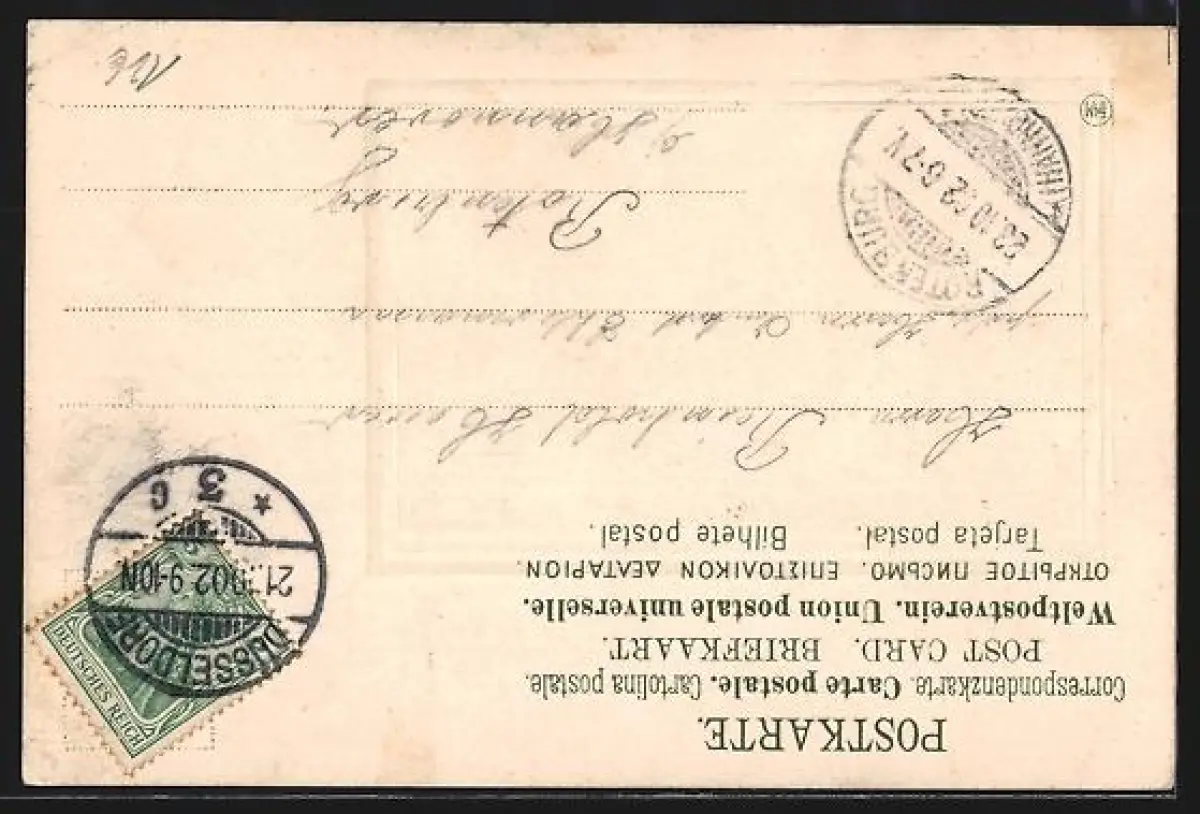 POSTKARTE.
Correspondenzkarte. Carte postale. Cartolina postale.
POST CARD. BRIEFKAART.
Weltpostverein. Union postale universelle.
ОТКРЫТОЕ ПИСЬМО. ΕΠΙΣΤΟΛΙΚΟΝ ΔΕΛΤΑΡΙΟΝ.
Tarjeta postal. Bilhete postal.
DEUTSCHES REICH
DÜSSELDORF
21.10.02 9-10N
* 3 c
Herrn
Herrn
Rotenburg
i/Hannover
ROTENBURG
22.10.02 6-7V.
(HANN)